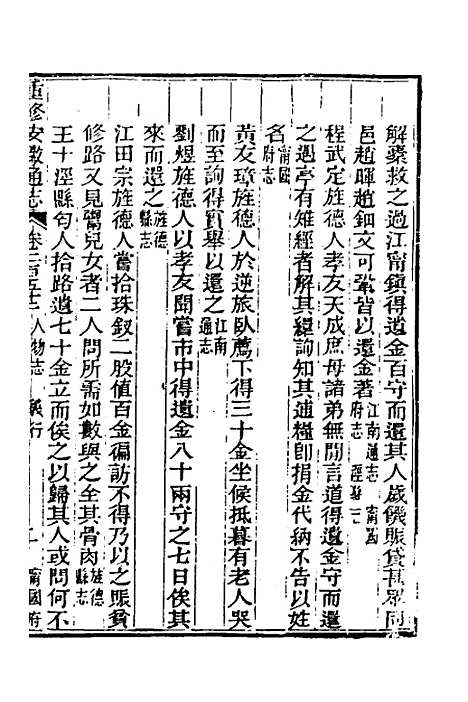 解橐救之過江甯鎮得遺金百守而還其人歲饑賑貸甚眾同
邑趙暉趙鈿文可鞏皆以還金著江南通志甯國府志涇縣志
程武定旌德人孝友天成庶母諸弟無閒言道得遺金守而還
之遇亭有雉經者解其繯詢知其逋糧卽捐金代納不告以姓
名甯國府志
黃友璋旌德人於逆旅臥薦下得三十金坐候抵暮有老人哭
而至詢得實舉以還之江南通志
劉煜旌德人以孝友聞嘗市中得遺金八十兩守之七日俟其
來而還之旌德縣志
江田宗旌德人嘗拾珠釵二股值百金徧訪不得乃以之賑貧
修路又見鬻兒女者二人問所需如數與之全其骨肉旌德縣志
王十涇縣匄人拾路遺七十金立而俟之以歸其人或問何不
重修安徽通志 卷二百五十二 人物志 義行 二 甯國府